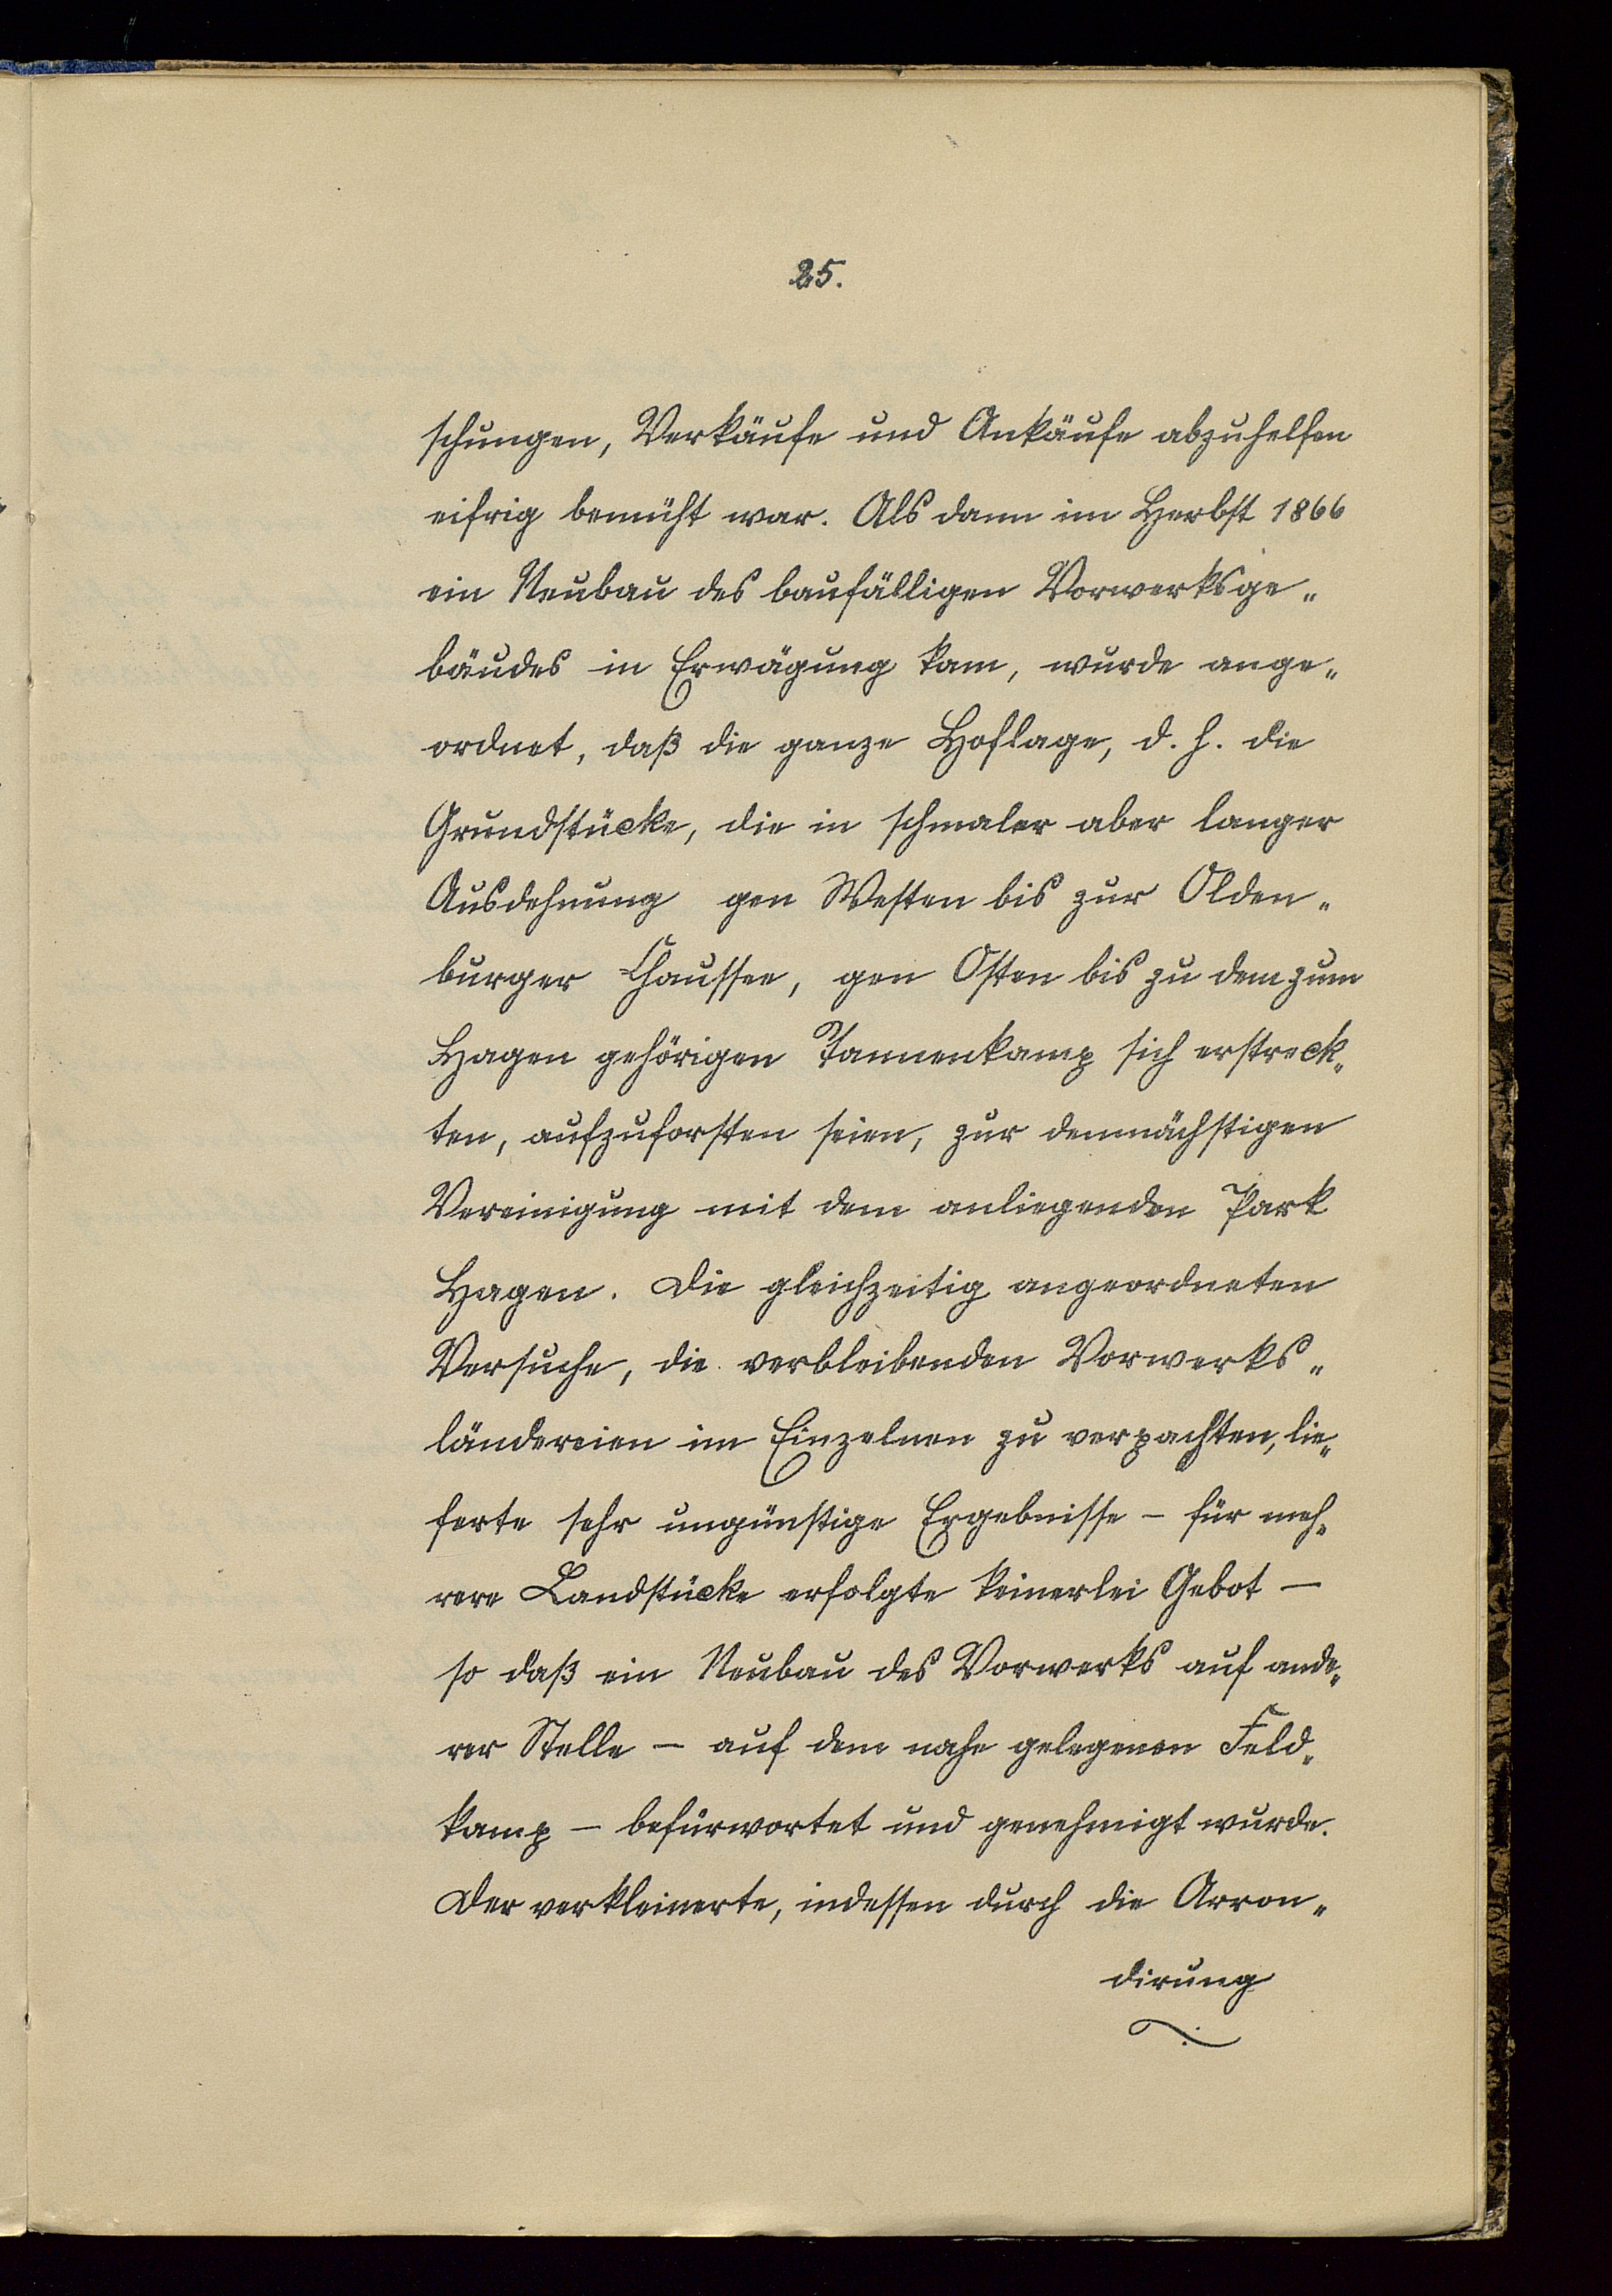 25.
schungen, Verkäufe und Ankäufe abzuhelfen
eifrig bemüht war. Als dann im Herbst 1866
ein Neubau des baufälligen Vorwerksge„
bäudes in Erwägung kam, wurde ange„
ordnet, daß die ganze Hoflage, d. h. die
Grundstücke, die in schmaler aber langer
Ausdehnung gen Westen bis zur Olden„
burger Chaussee, gen Osten bis zu dem zum
Hagen gehörigen Tannenkamp sich erstreck„
ten, aufzuforsten seien, zur demnächstigen
Vereinigung mit dem anliegenden Park
Hagen. Die gleichzeitig angeordneten
Versuche, die verbleibenden Vorwerks„
ländereien im Einzelnen zu verpachten, lie„
ferte sehr ungünstige Ergebnisse – für meh„
rere Landstücke erfolgte keinerlei Gebot –
so daß ein Neubau des Vorwerks auf ande„
rer Stelle – auf dem nahe gelegenen Feld„
kamp – befürwortet und genehmigt wurde.
Der verkleinerte, indessen durch die Arron„
dirung